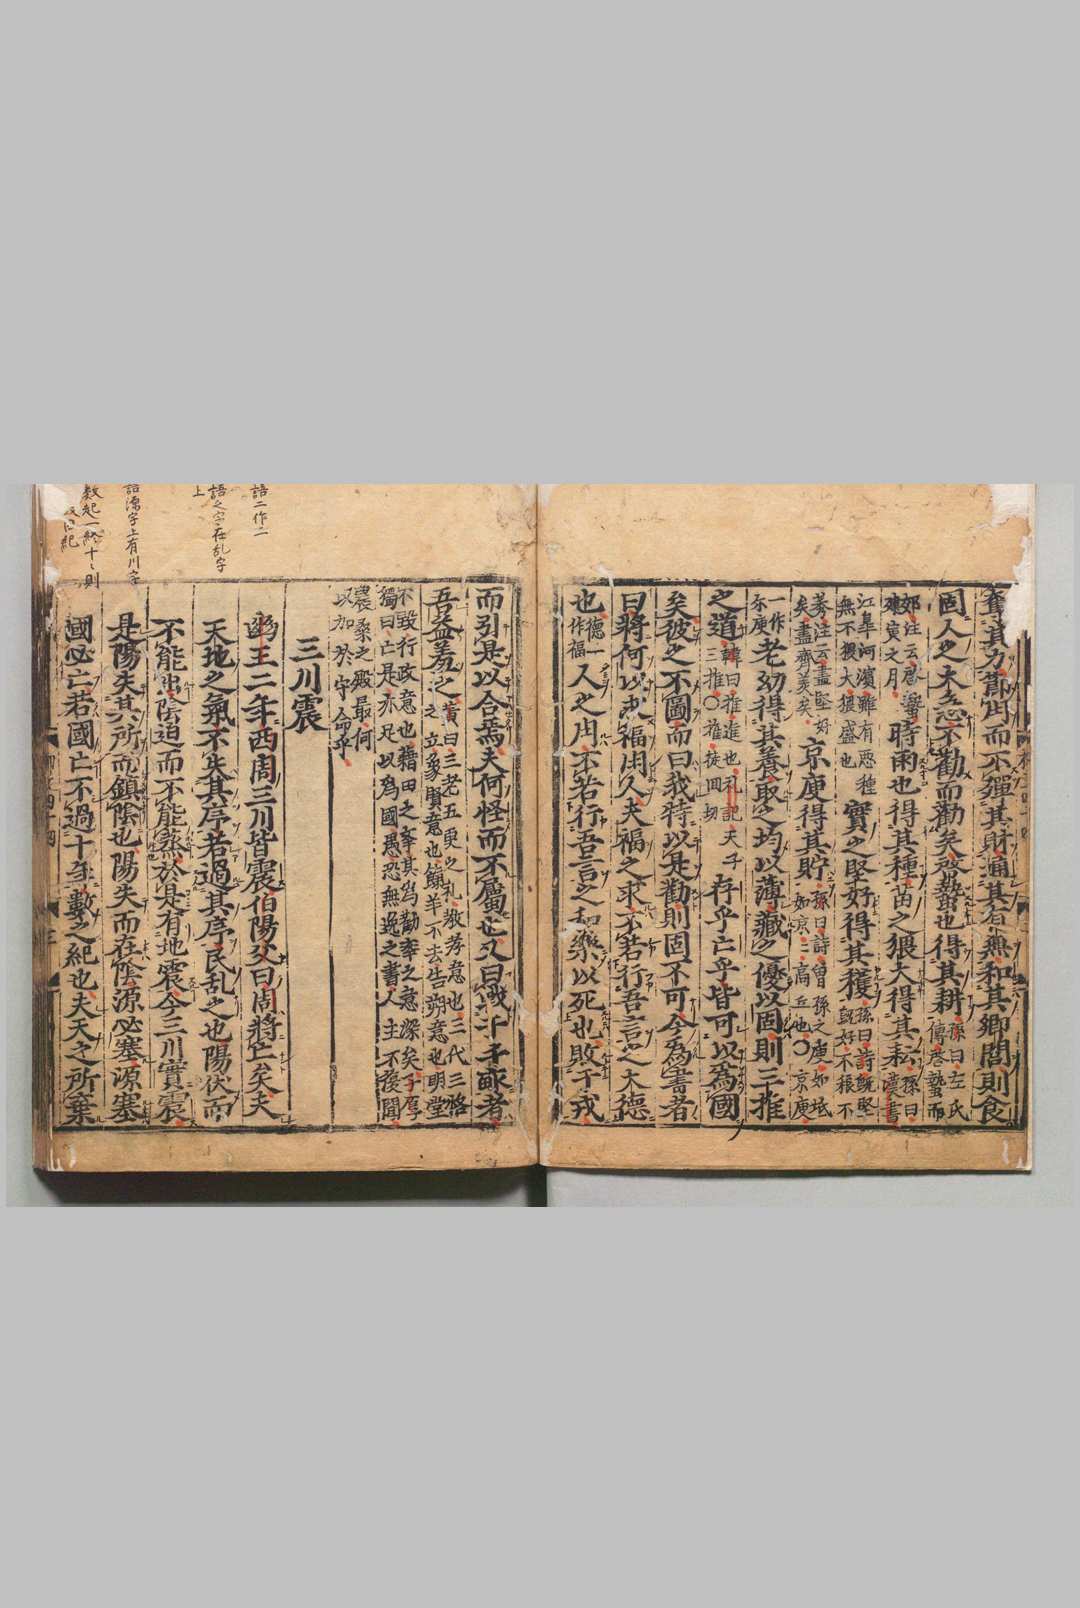 奪其力節用而不殫其財通其有無和其鄉閭則食
固人之大急不勸而勸矣啓蟄也得其耕孫曰左氏傳啓蟄而
郊注云啓蟄建寅之月時雨也得其種苗之猥大得其耘孫曰漢書
江皐河濱雖有惡種無不猥大猥盛也實之堅好得其穫孫曰詩旣堅旣好不稂不
莠注云盡堅好矣盡齊美矣京庾得其貯孫曰詩曾孫之庾如坻如京二高丘也〇京庾
一作尓庾老幼得其養取之均以薄藏之優以固則三推
之道韓曰推進也礼記天子三推〇推徒回切存乎亡乎皆可以為國
矣彼之不圖而曰我特以是勸則固不可今為書者
曰將何以求福用人夫福之求不若行吾言之大德
也德一作福人之用不若行吾言之和樂以死也敗于戎
而引是以合焉夫何怪而不屬也又曰戰于千畝者
吾益羞之黃曰三老五更之礼敎孝意也三代三恪之立象賢意也餼羊不去告朔意也明堂
不毀行政意也藉田之舉其為勸率之意深矣子厚獨曰亡是亦足以為國愚恐無逸之書人主不復聞
農桑之殿最何以加於守令乎
三川震
幽王二年西周三川皆震伯陽父曰周將亡矣夫
天地之氣不失其序若過其序民乱之也陽伏而
不能出陰迫而不能蒸於是有地震今三川實震
是陽失其所而鎮陰也陽失而在陰源必塞源塞
國必亡若國亡不過十年數之紀也夫天之所棄
語二作二
語之字在乱字上
語源字上有川字
数起一終十々則